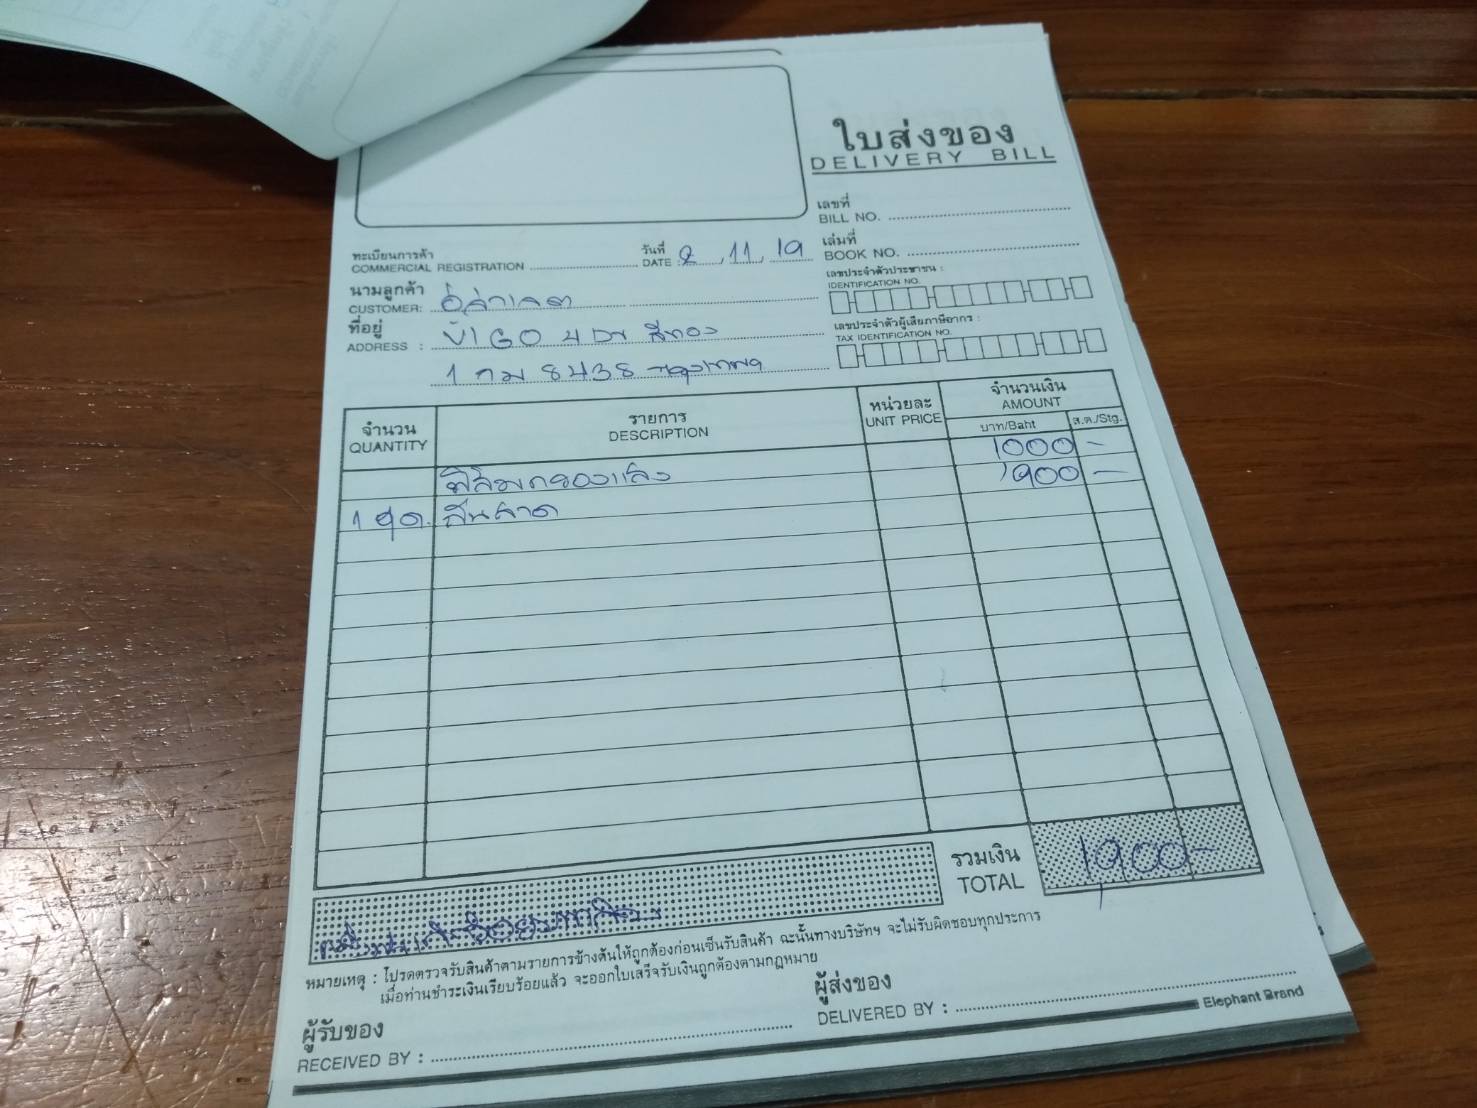 ใบส่งของ
DELIVERY BILL
เลขที่
BILL NO.
ทะเบียนการค้า
COMMERCIAL REGISTRATION
วันที่
DATE 2, 11, 19
เล่มที่
BOOK NO.
นามลูกค้า
CUSTOMER:
เลขประจำตัวประชาชน :
IDENTIFICATION NO.
ที่อยู่
ADDRESS : VIGO 4 DR สีทอง
1 กม 8438 กรุงเทพฯ
เลขประจำตัวผู้เสียภาษีอากร :
TAX IDENTIFICATION NO.
จำนวน
QUANTITY
รายการ
DESCRIPTION
หน่วยละ
UNIT PRICE
จำนวนเงิน
AMOUNT
บาท/Baht
ส.ต./Stg.
ฟิล์มกรองแสง 1000 -
1 ชุด 1900 -
รวมเงิน
TOTAL
1,900 -
หมายเหตุ : โปรดตรวจรับสินค้าตามรายการข้างต้นให้ถูกต้องก่อนเซ็นรับสินค้า ฉะนั้นทางบริษัทฯ จะไม่รับผิดชอบทุกประการ
เมื่อท่านชำระเงินเรียบร้อยแล้ว จะออกใบเสร็จรับเงินถูกต้องตามกฎหมาย
ผู้รับของ
RECEIVED BY :
ผู้ส่งของ
DELIVERED BY :
Elephant Brand